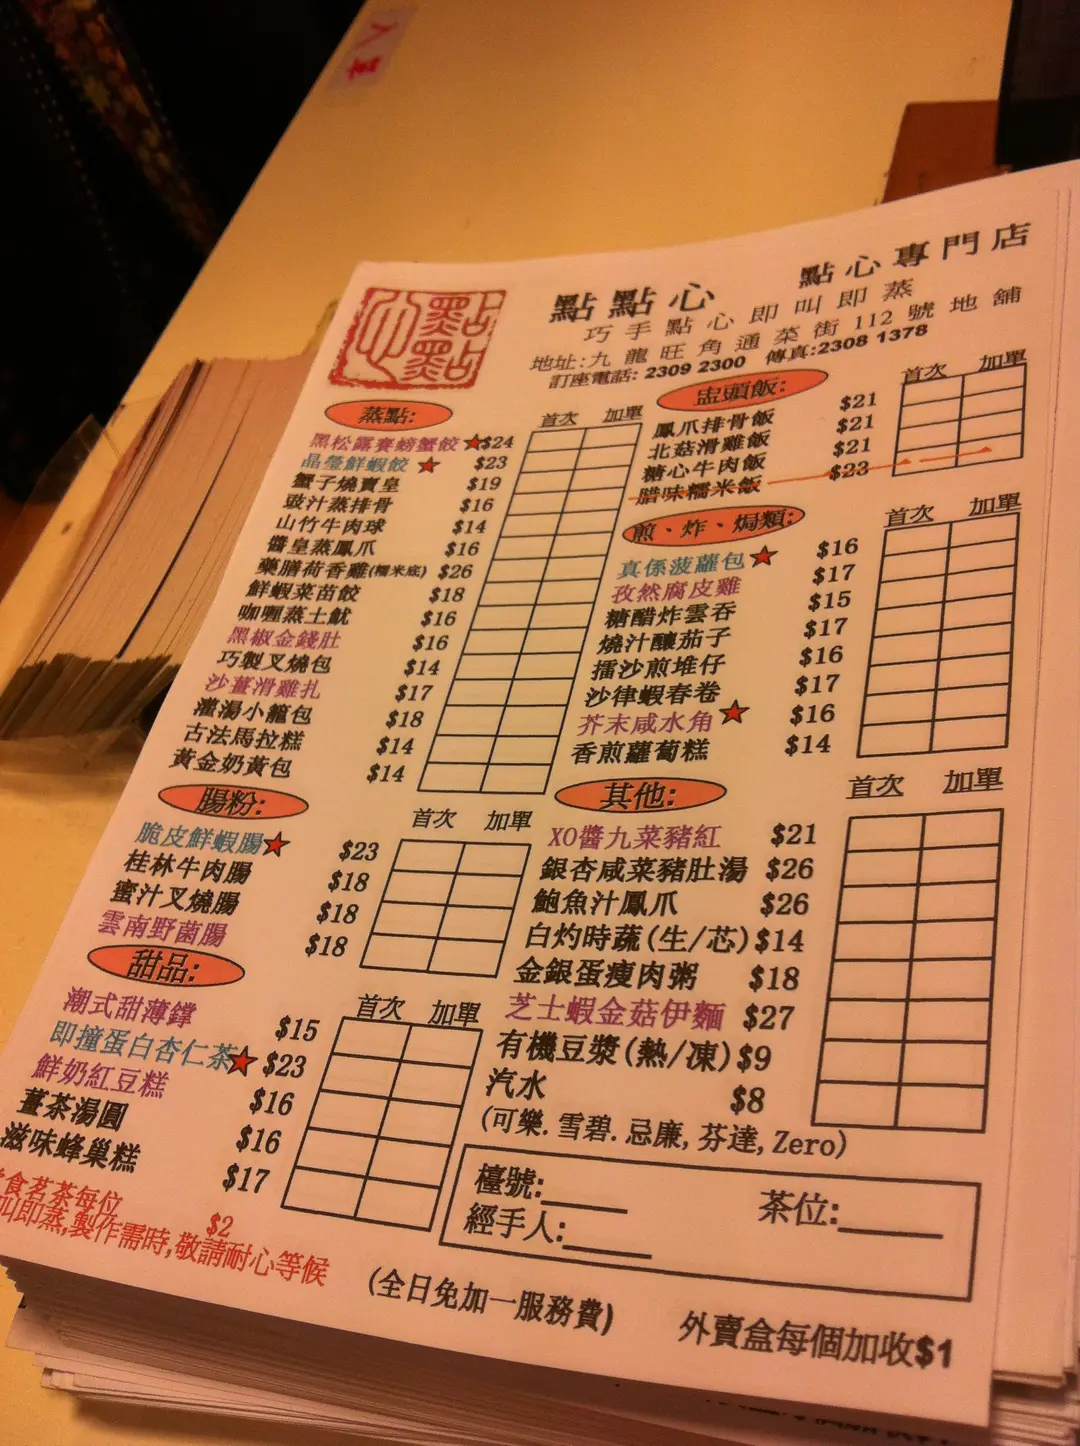 點點心
點心專門店
巧手點心即叫即蒸
地址:九龍旺角通菜街112號地舖
訂座電話: 2309 2300 傳真:2308 1378
蒸點:
首次 加單
黑松露賽螃蟹餃★$24
晶瑩鮮蝦餃★ $23
蟹子燒賣皇 $19
豉汁蒸排骨 $16
山竹牛肉球 $14
醬皇蒸鳳爪 $16
藥膳荷香雞(糯米底) $26
鮮蝦菜苗餃 $18
咖喱蒸土魷 $16
黑椒金錢肚 $16
巧製叉燒包 $14
沙薑滑雞扎 $17
灌湯小籠包 $18
古法馬拉糕 $14
黃金奶黃包 $14
腸粉:
首次 加單
脆皮鮮蝦腸★ $23
桂林牛肉腸 $18
蜜汁叉燒腸 $18
雲南野菌腸 $18
甜品:
首次 加單
潮式甜薄鐣 $15
即撞蛋白杏仁茶★ $23
鮮奶紅豆糕 $16
薑茶湯圓 $16
滋味蜂巢糕 $17
食茗茶每位 $2
叫即蒸,製作需時,敬請耐心等候
盅頭飯:
首次 加單
鳳爪排骨飯 $21
北菇滑雞飯 $21
糖心牛肉飯 $21
腊味糯米飯 $23
煎、炸、焗類:
首次 加單
真係菠蘿包★ $16
孜然腐皮雞 $17
糖醋炸雲吞 $15
燒汁釀茄子 $17
擂沙煎堆仔 $16
沙律蝦春卷 $17
芥末咸水角★ $16
香煎蘿蔔糕 $14
其他:
首次 加單
XO醬九菜豬紅 $21
銀杏咸菜豬肚湯 $26
鮑魚汁鳳爪 $26
白灼時蔬(生/芯)$14
金銀蛋瘦肉粥 $18
芝士蝦金菇伊麵 $27
有機豆漿(熱/凍)$9
汽水 $8
(可樂.雪碧.忌廉,芬達,Zero)
檯號:____ 茶位:____
經手人:____
(全日免加一服務費)
外賣盒每個加收$1